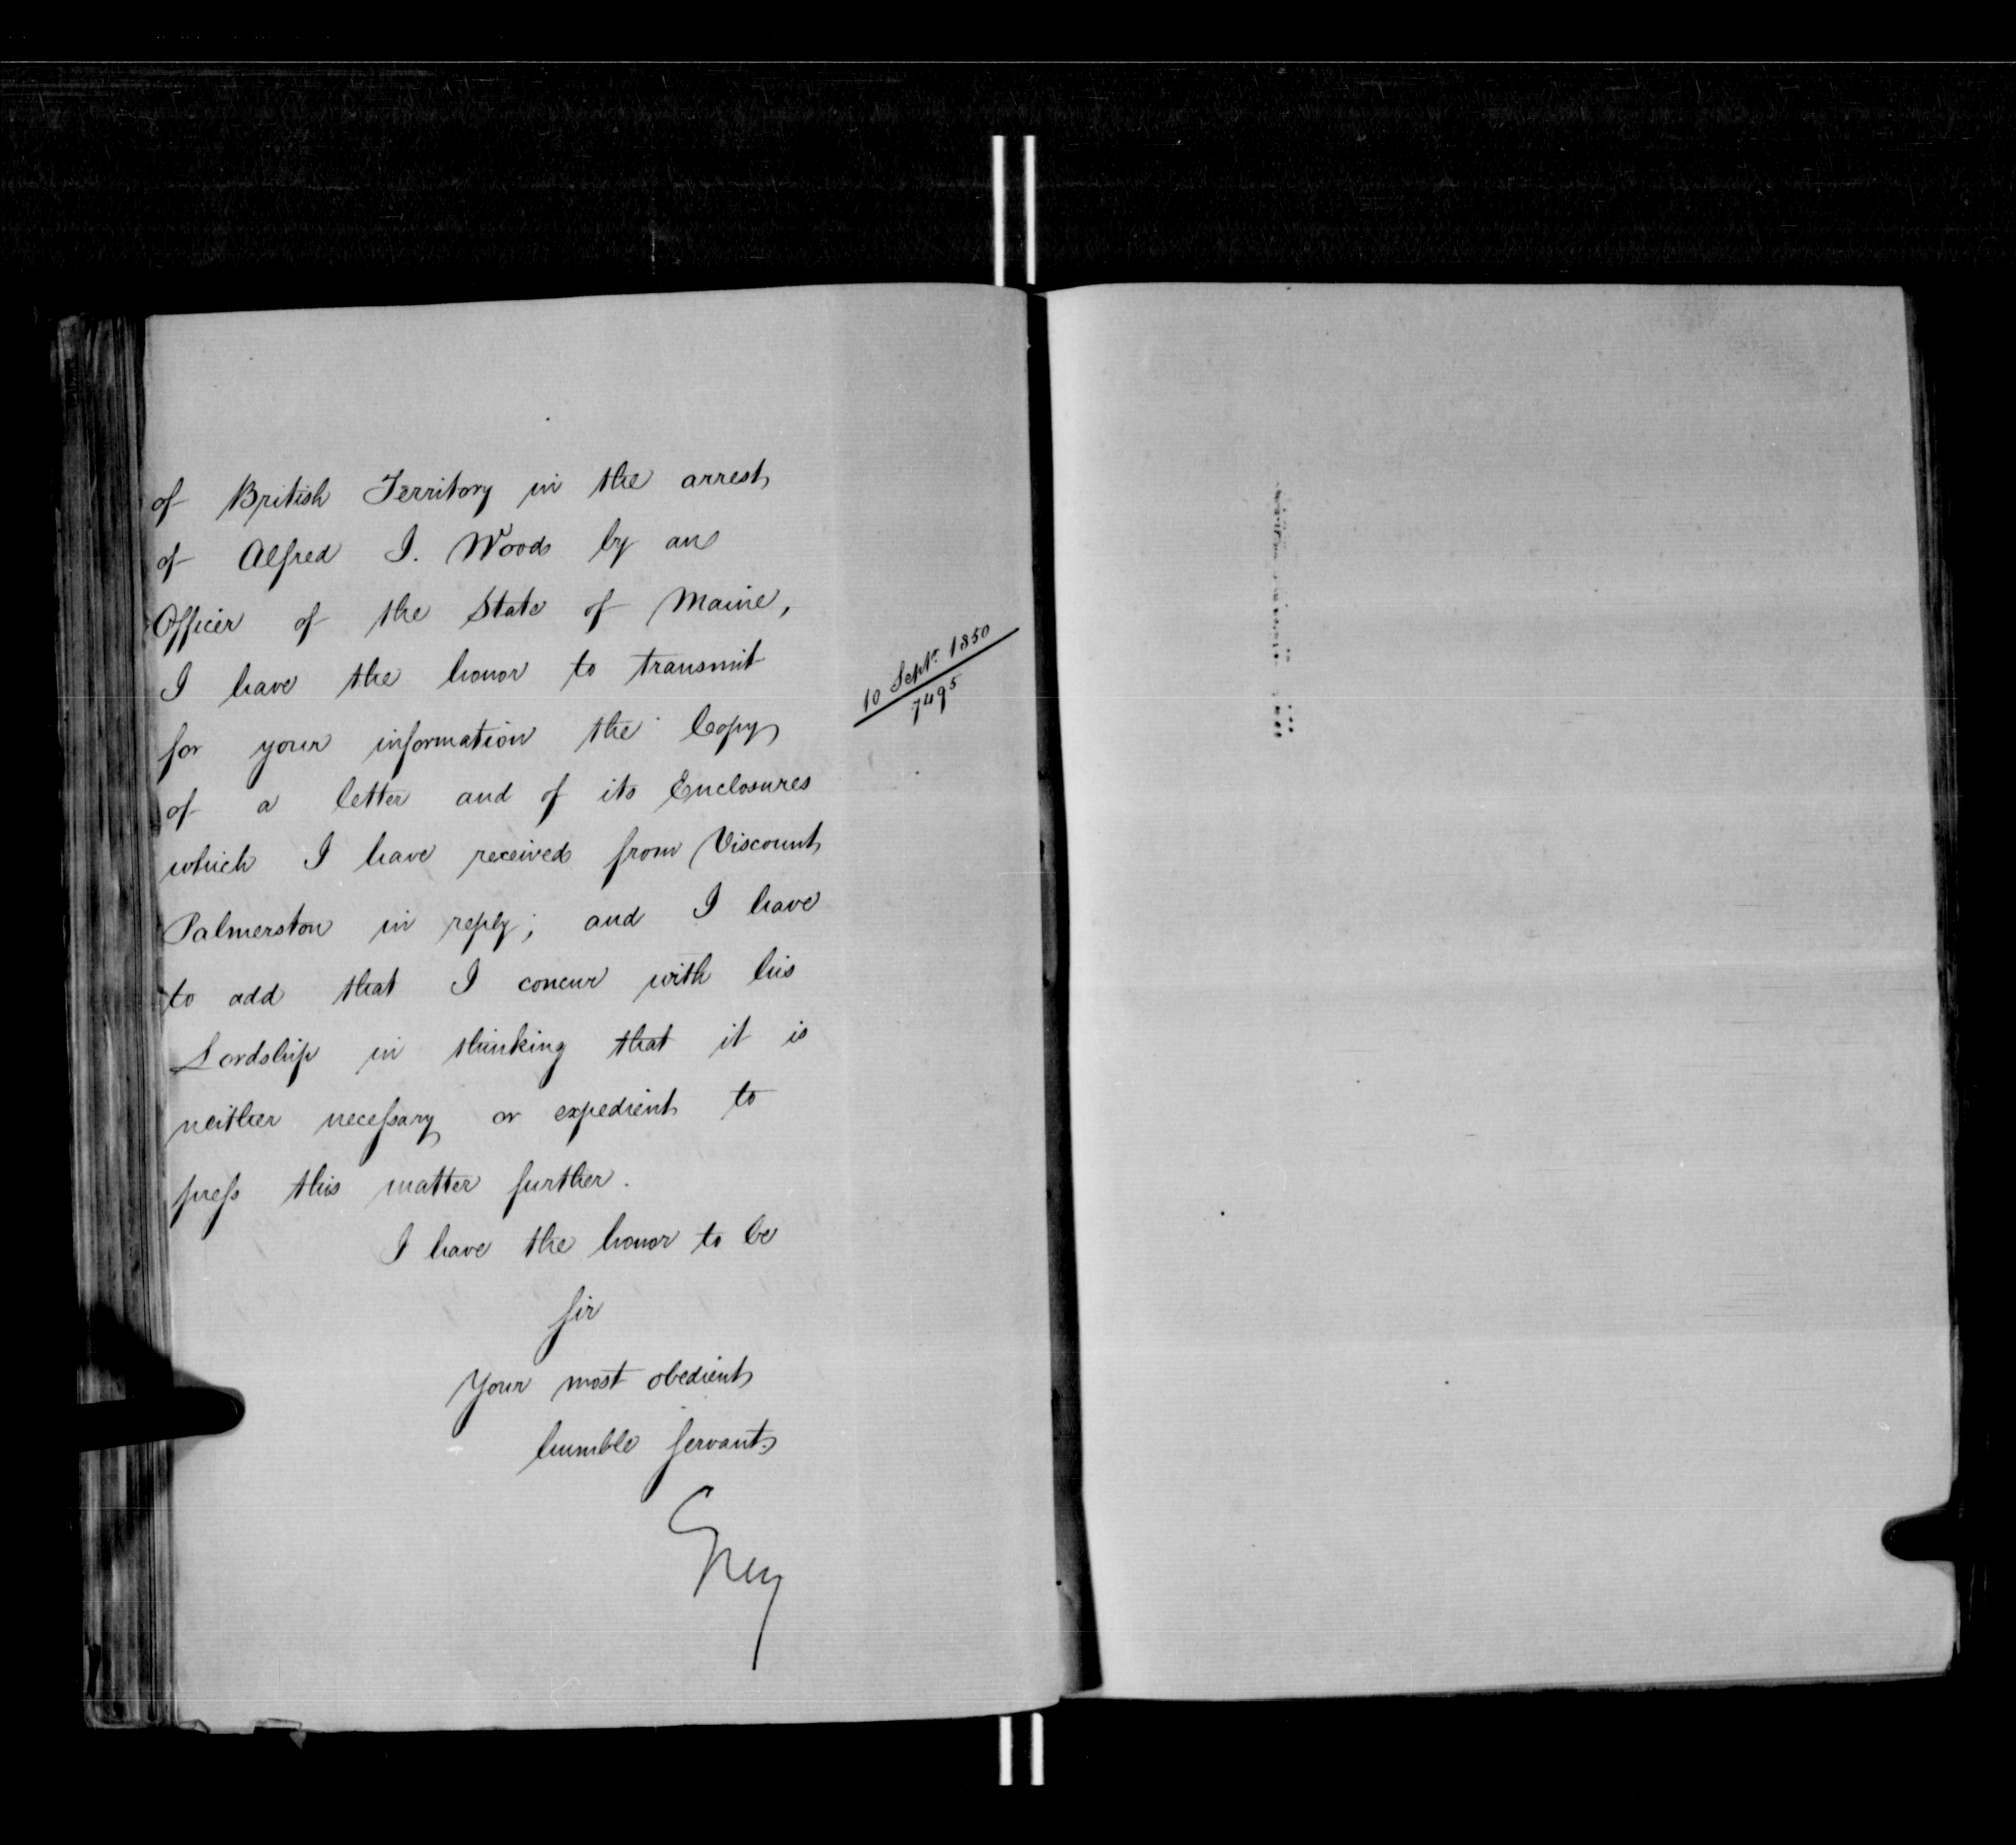 of British Territory in the arrest
of Alfred I. Woods by an
Officer of the State of Maine,
I have the honor to transmit
for your information the Copy
of a letter and of its Enclosures
which I have received from Viscount
Palmerston in reply; and I have
to add that I concur with his
Lordship in thinking that it is
neither necessary or expedient to
press this matter further.
I have the honor to be
Sir
Your most obedient
humble Servant
Grey
10 Septr. 1850
7495